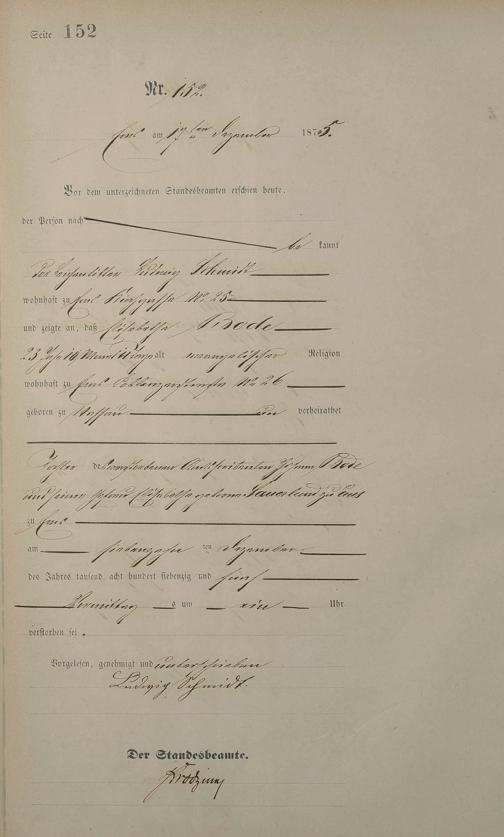 Seite 152
Nr. 152.
Ems am 17ten Dezember 1875.
Vor dem unterzeichneten Standesbeamten erschien heute,
der Person nach
be kannt
der Ludwig Schmidt
wohnhaft zu Ems No 25
und zeigte an, daß Elisabetha Bode
23 Jahr alt evangelischer Religion
wohnhaft zu Ems Coblenzerstraße No 26
geboren zu Nassau un verheirathet
Tochter des verstorbenen Johann Bode
und seiner Ehefrau Elisabetha geborne Sauerbrand zu Ems
zu Ems
am siebenzehn ten Dezember
des Jahres tausend acht hundert siebenzig und fünf
Vormittag s um ein Uhr
verstorben sei.
Vorgelesen, genehmigt und unterschrieben
Ludwig Schmidt.
Der Standesbeamte.